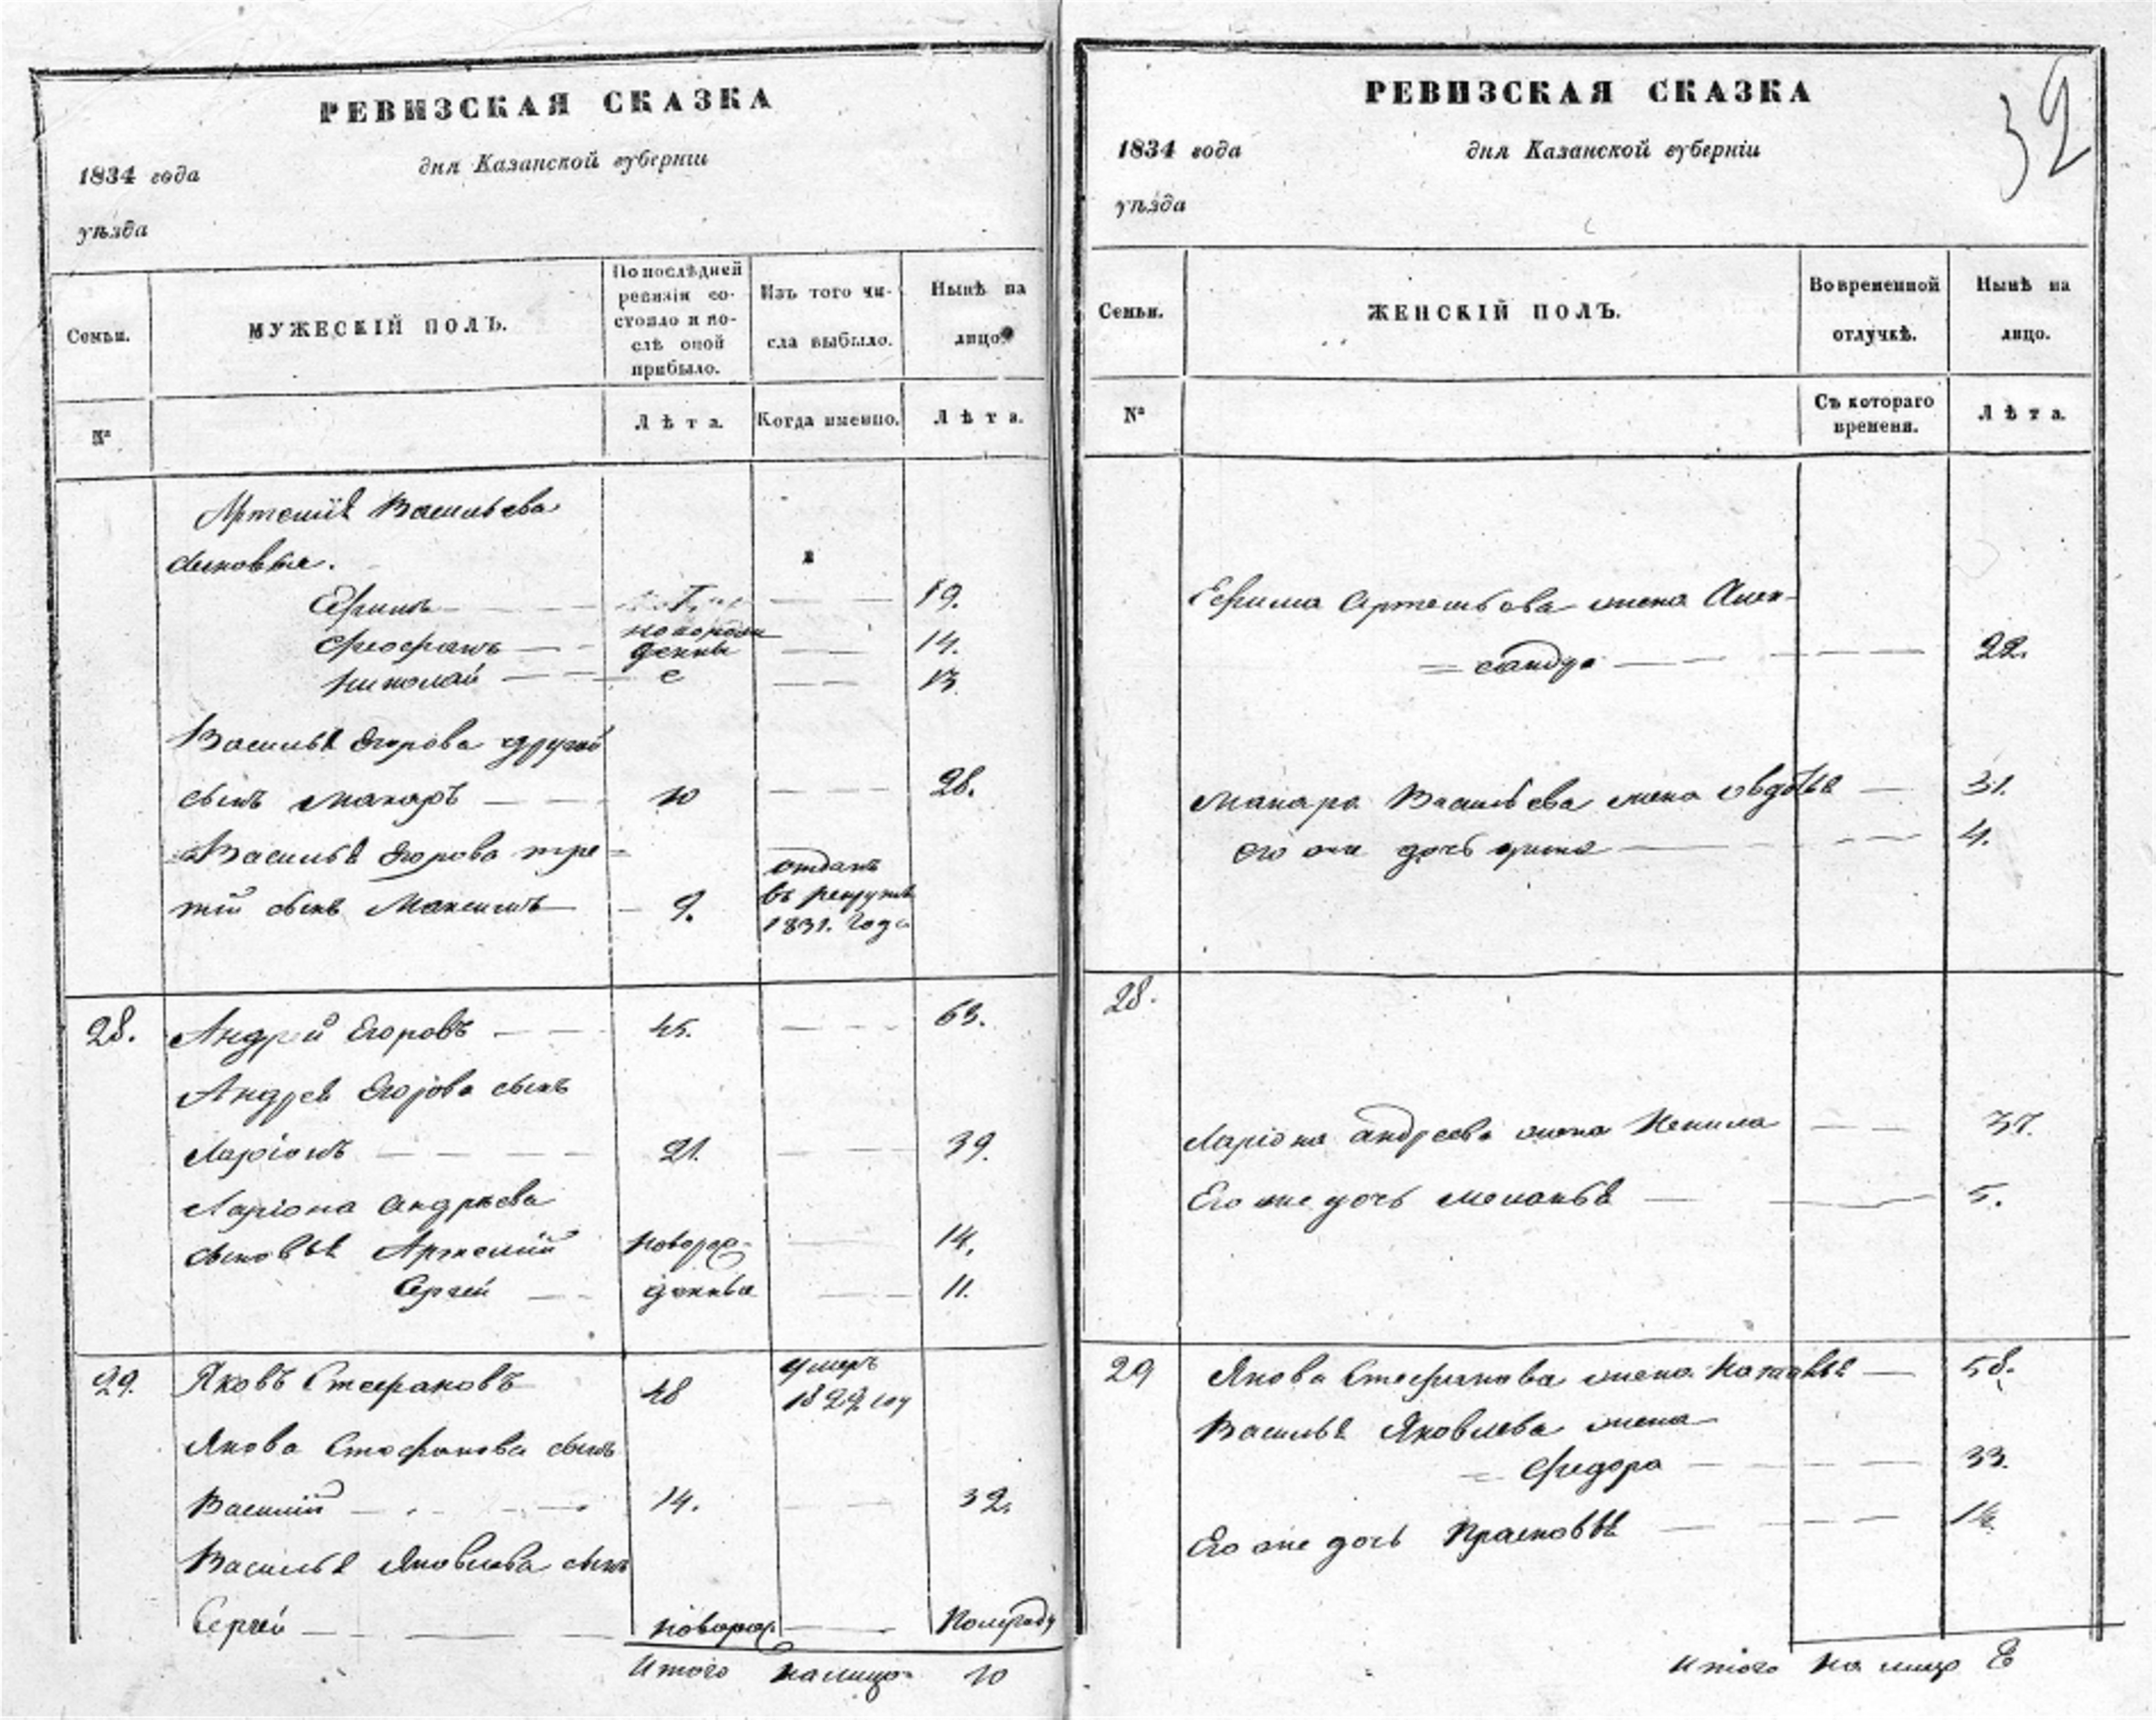 РЕВИЗСКАЯ СКАЗКА
1834 года дня Казанской губерніи
уѣзда
Семьи.
МУЖЕСКІЙ ПОЛЪ.
По послѣдней ревизіи со-
стояло и по-
слѣ оной
прибыло.
Изъ того чи-
сла выбыло.
Нынѣ на
лицо.
№
Лѣта.
Когда именно.
Лѣта.
Артемія Васильева
сыновья.
Ефимъ 19.
Феофанъ новорож 14.
денны
Николай е 13.
Василья Егорова другой
сынъ Макаръ 10 28.
Василья Егорова тре
тій сынъ Максимъ 9. отданъ
въ рекруты
1831. года
28. Андрей Егоровъ 45. 63.
Андрея Егорова сынъ
Ларіонъ 21. 39.
Ларіона Андрѣева
сыновья Артемій новорож- 14.
Сергей денныя 11.
29. Яковъ Стефановъ 48 умеръ
182 году
Якова Стефанова сынъ
Василій 14. 32.
Василья Яковлева сынъ
Сергей новорож. Полугоду
Итого налицо 10
РЕВИЗСКАЯ СКАЗКА
32
1834 года дня Казанской губерніи
уѣзда
Семьи.
ЖЕНСКІЙ ПОЛЪ.
Во временной
отлучкѣ.
Нынѣ на
лицо.
№
Съ котораго
времени.
Лѣта.
Ефима Артемьева жена Алек-
= сандра 22.
Макара Васильева жена Овдотья 31.
его же дочь Ирина 4.
28.
Ларіона Андреева жена Ненила 37.
Его же дочь Меланья 5.
29 Якова Стефанова жена Наталья 58.
Василья Яковлева жена
= Федора 33.
Его же дочь Прасковья
Итого на лицо 8